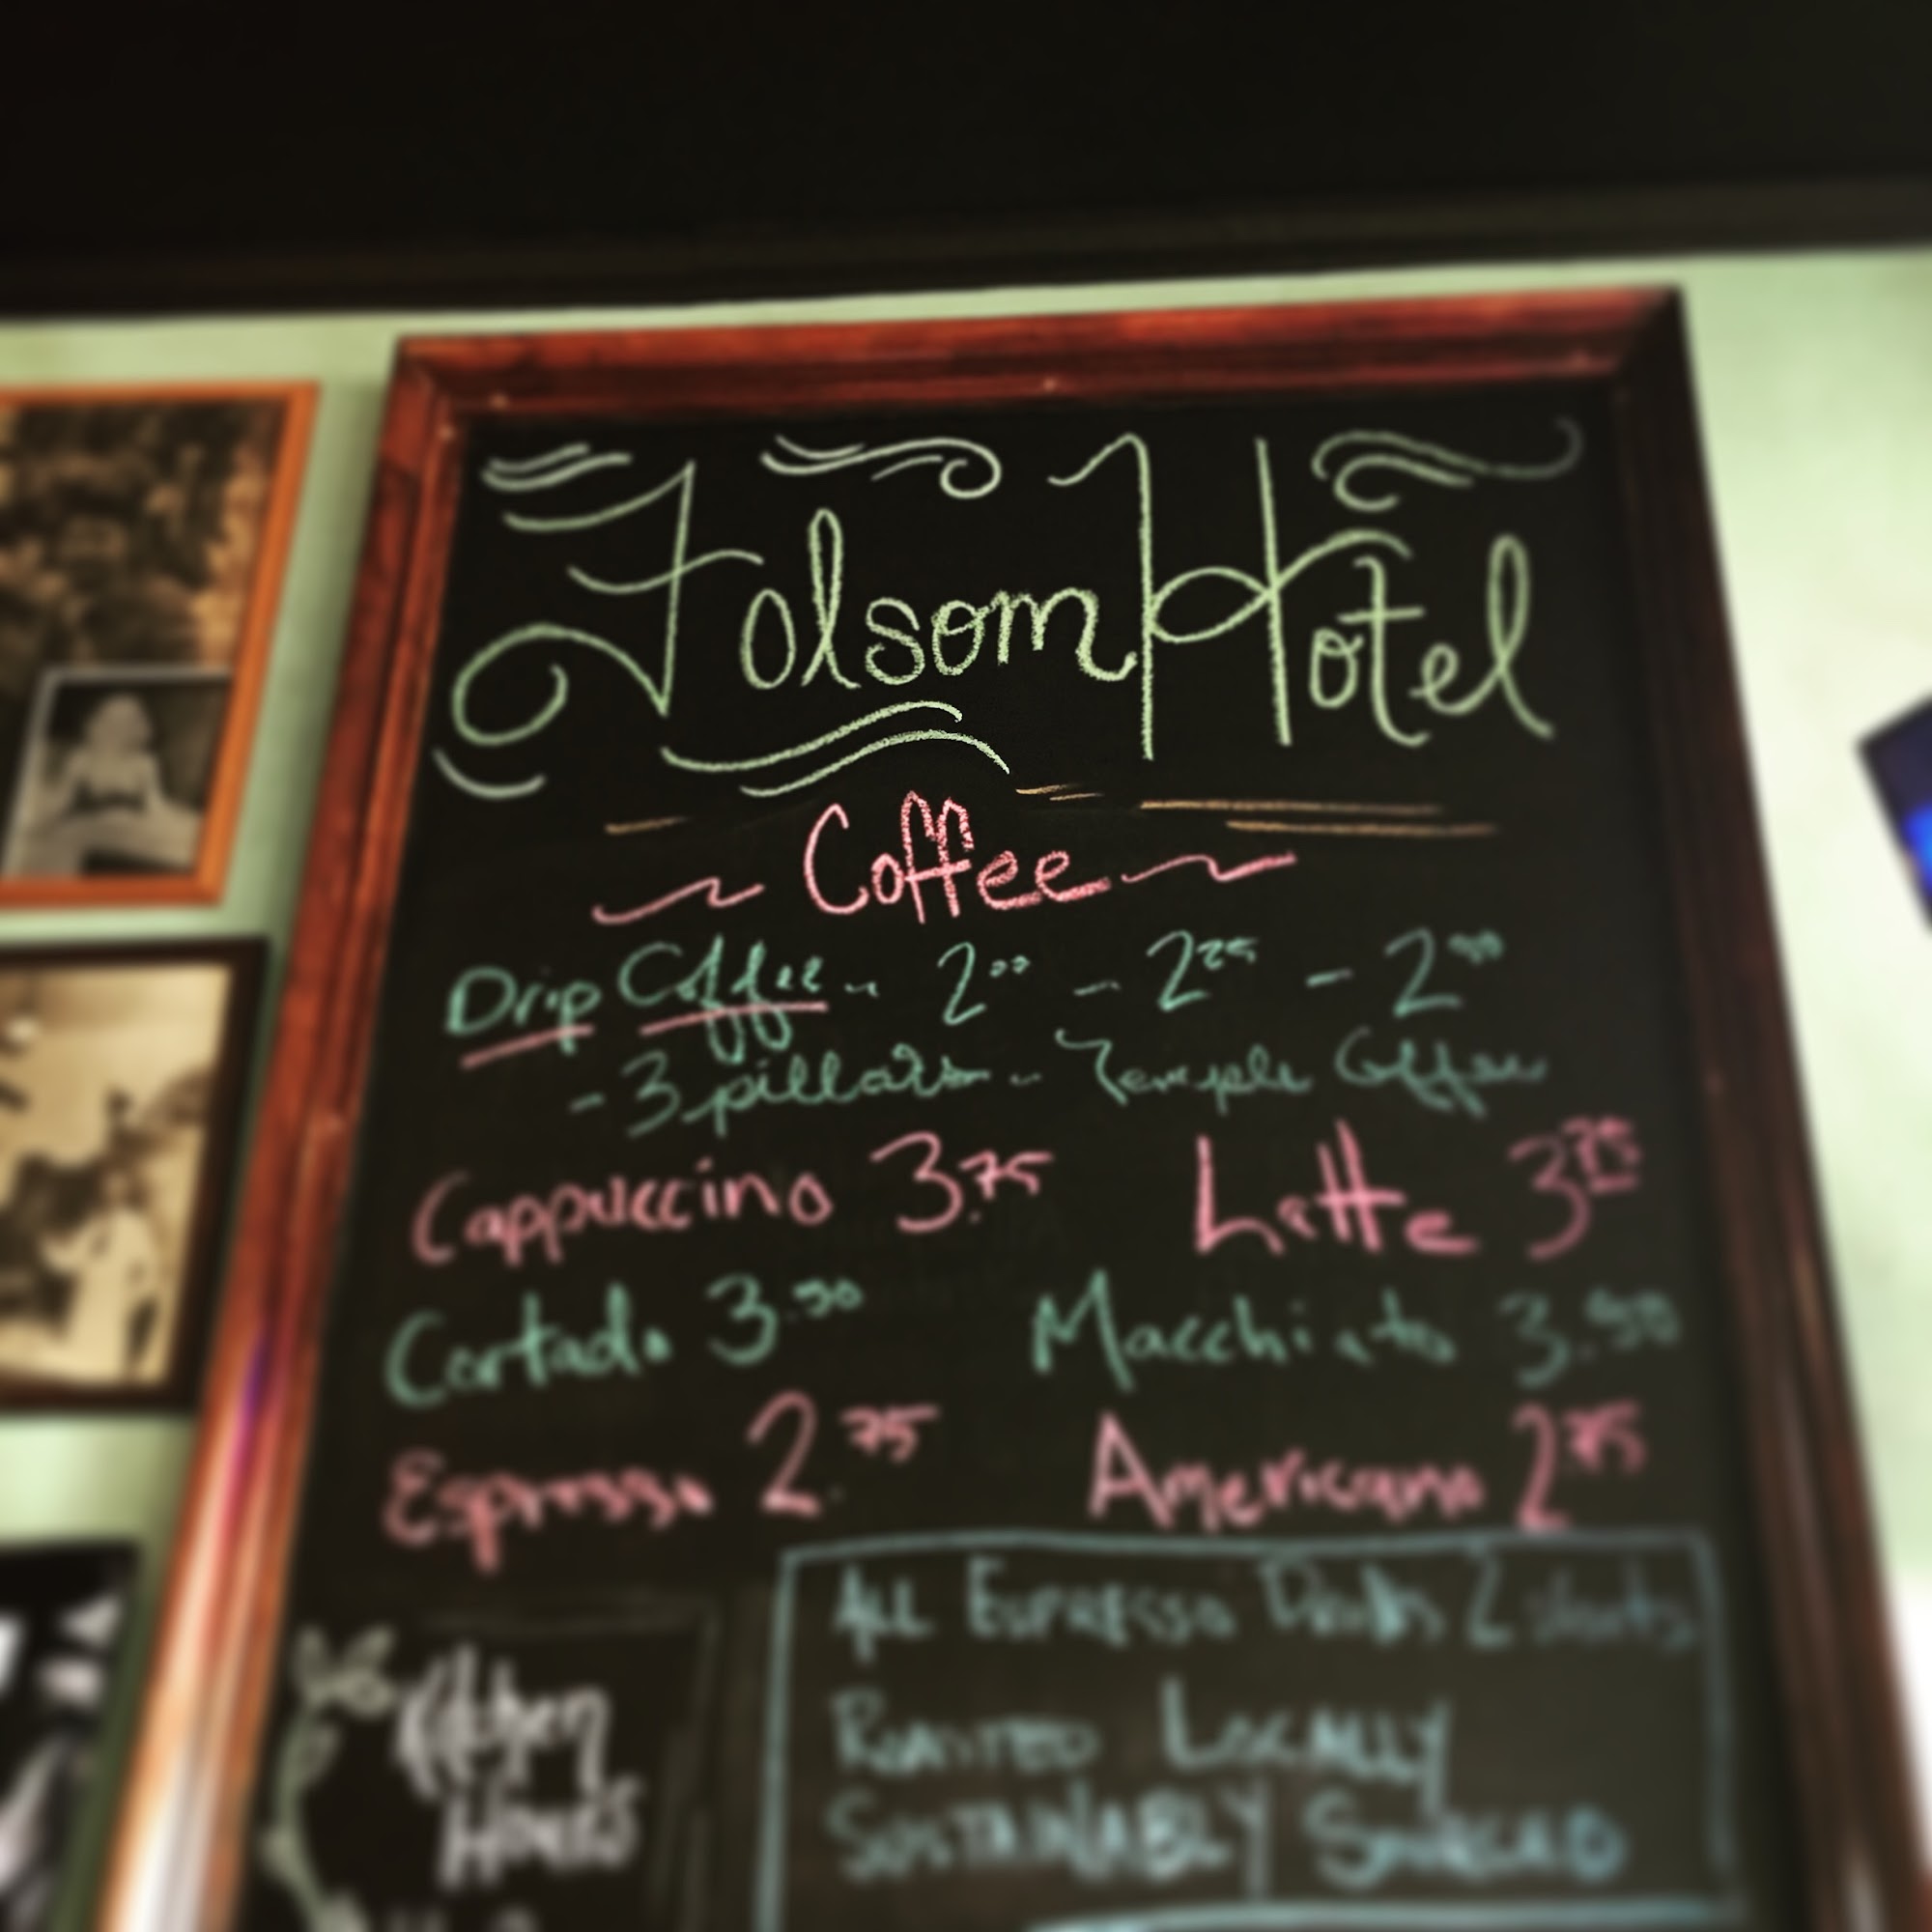 Folsom Hotel
Coffee
Drip Coffee - 2.00 - 2.25 - 2.50
- 3 pillars - Temple Coffee
Cappuccino 3.75 Latte 3.75
Cortado 3.50 Macchiato 3.50
Espresso 2.75 Americano 2.75
ALL ESPRESSO Drinks 2 shots
ROASTED LOCALLY
SUSTAINABLY SOURCED
Kitchen
Hours